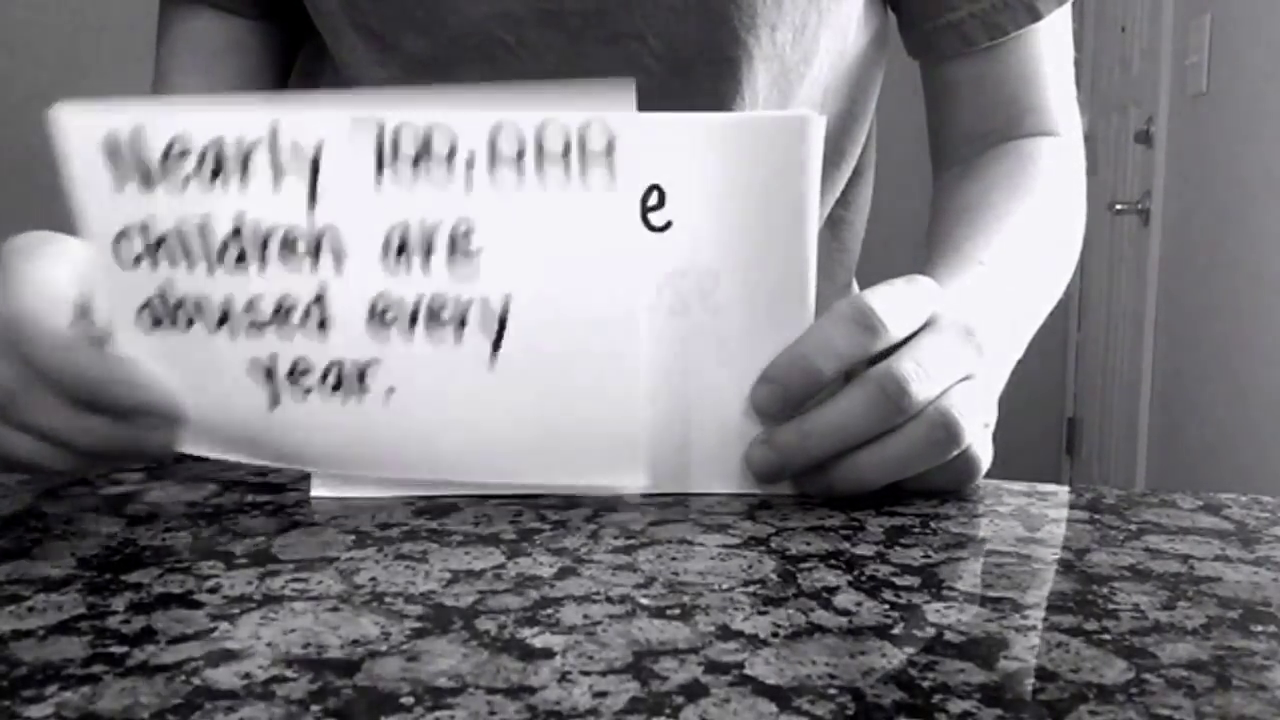 Nearly 700,000
children are
abused every
year.
e